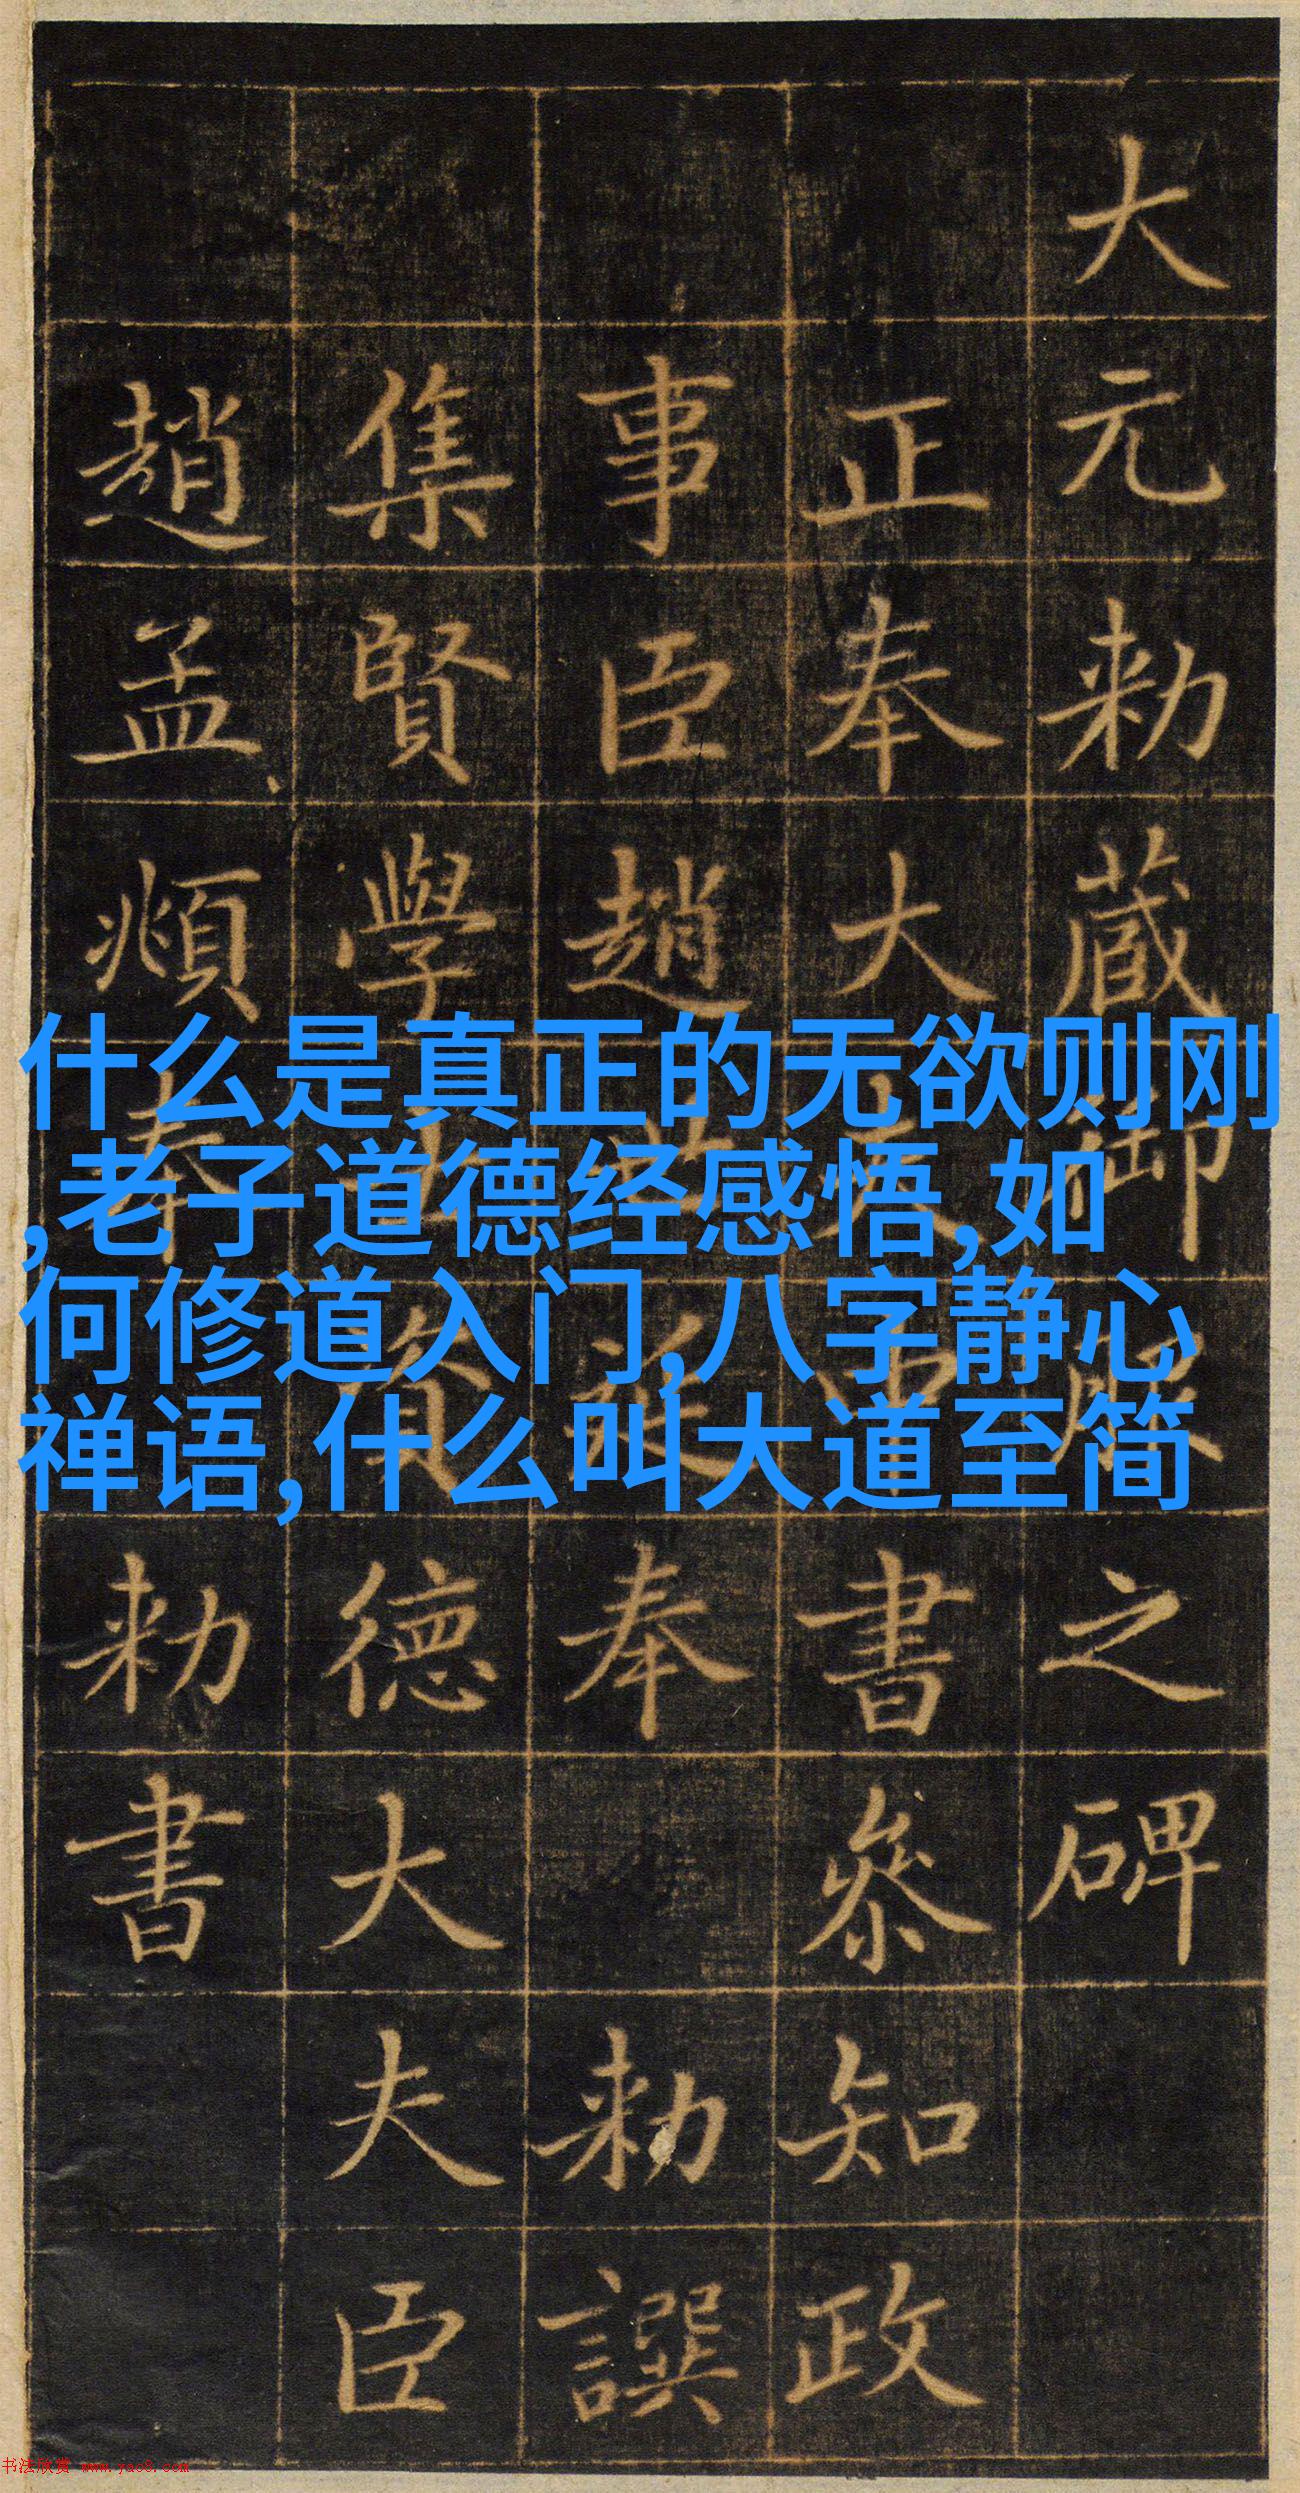 什么是真正的无欲则刚
,老子道德经感悟,如
何修道入门,八字静心
禅语,什么叫大道至简
大元勅藏御服之碑
正奉大夫中書參知政
事臣趙世延奉勅譔
集賢學士資德大夫臣
趙孟頫奉勅書
书法欣赏 www.yac8.com